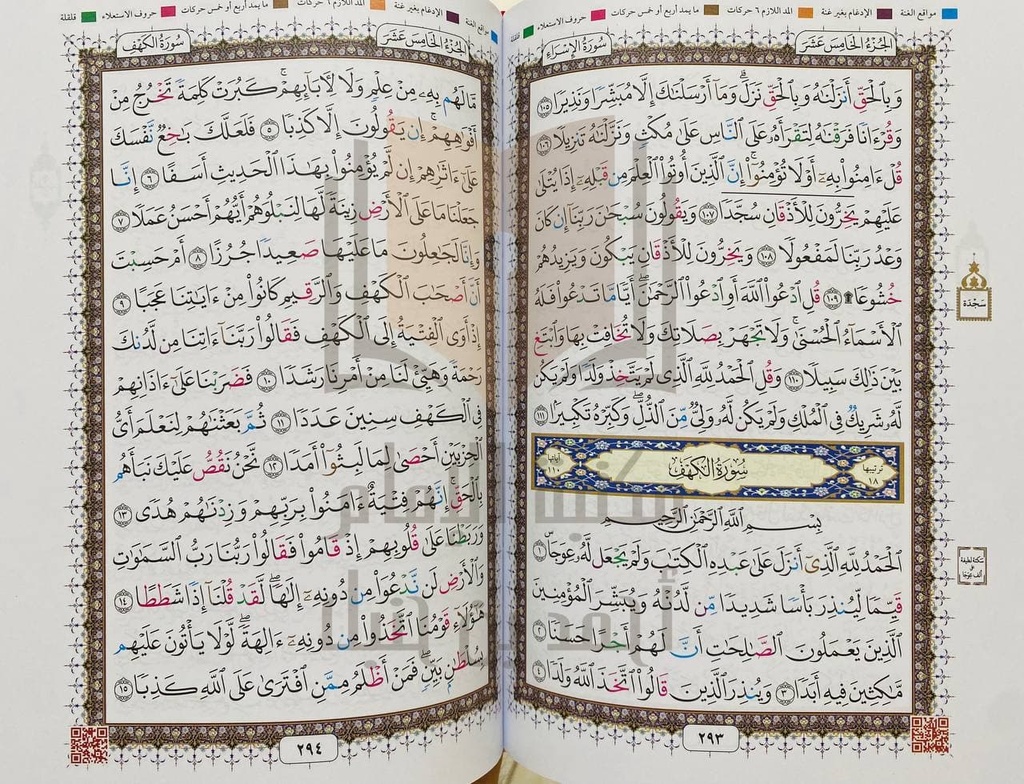 مواقع الغنة الإدغام بغير غنة المد اللازم ٦ حركات ما يمد أربع أو خمس حركات حروف الاستعلاء قلقلة
الجُزْءُ الخَامِسَ عَشَر سُورَةُ الإِسْرَاءِ
وَبِٱلْحَقِّ أَنزَلْنَٰهُ وَبِٱلْحَقِّ نَزَلَۗ وَمَآ أَرْسَلْنَٰكَ إِلَّا مُبَشِّرًا وَنَذِيرًا ١٠٥
وَقُرْءَانًا فَرَقْنَٰهُ لِتَقْرَأَهُۥ عَلَى ٱلنَّاسِ عَلَىٰ مُكْثٍ وَنَزَّلْنَٰهُ تَنزِيلًا ١٠٦
قُلْ ءَامِنُوا۟ بِهِۦٓ أَوْ لَا تُؤْمِنُوٓا۟ۚ إِنَّ ٱلَّذِينَ أُوتُوا۟ ٱلْعِلْمَ مِن قَبْلِهِۦٓ إِذَا يُتْلَىٰ
عَلَيْهِمْ يَخِرُّونَ لِلْأَذْقَانِ سُجَّدًا ١٠٧ وَيَقُولُونَ سُبْحَٰنَ رَبِّنَآ إِن كَانَ
وَعْدُ رَبِّنَا لَمَفْعُولًا ١٠٨ وَيَخِرُّونَ لِلْأَذْقَانِ يَبْكُونَ وَيَزِيدُهُمْ
خُشُوعًا ۩ ١٠٩ قُلِ ٱدْعُوا۟ ٱللَّهَ أَوِ ٱدْعُوا۟ ٱلرَّحْمَٰنَۖ أَيًّا مَّا تَدْعُوا۟ فَلَهُ
ٱلْأَسْمَآءُ ٱلْحُسْنَىٰۚ وَلَا تَجْهَرْ بِصَلَاتِكَ وَلَا تُخَافِتْ بِهَا وَٱبْتَغِ
بَيْنَ ذَٰلِكَ سَبِيلًا ١١٠ وَقُلِ ٱلْحَمْدُ لِلَّهِ ٱلَّذِى لَمْ يَتَّخِذْ وَلَدًا وَلَمْ يَكُن
لَّهُۥ شَرِيكٌ فِى ٱلْمُلْكِ وَلَمْ يَكُن لَّهُۥ وَلِىٌّ مِّنَ ٱلذُّلِّۖ وَكَبِّرْهُ تَكْبِيرًا ١١١
ترتيبها ١٨ سُورَةُ الكَهْفِ آياتها ١١٠
بِسْمِ ٱللَّهِ ٱلرَّحْمَٰنِ ٱلرَّحِيمِ
ٱلْحَمْدُ لِلَّهِ ٱلَّذِىٓ أَنزَلَ عَلَىٰ عَبْدِهِ ٱلْكِتَٰبَ وَلَمْ يَجْعَل لَّهُۥ عِوَجَاۜ ١
قَيِّمًا لِّيُنذِرَ بَأْسًا شَدِيدًا مِّن لَّدُنْهُ وَيُبَشِّرَ ٱلْمُؤْمِنِينَ
ٱلَّذِينَ يَعْمَلُونَ ٱلصَّٰلِحَٰتِ أَنَّ لَهُمْ أَجْرًا حَسَنًا ٢
مَّٰكِثِينَ فِيهِ أَبَدًا ٣ وَيُنذِرَ ٱلَّذِينَ قَالُوا۟ ٱتَّخَذَ ٱللَّهُ وَلَدًا ٤
سَجْدَة
٢٩٣
مواقع الغنة الإدغام بغير غنة المد اللازم ٦ حركات ما يمد أربع أو خمس حركات حروف الاستعلاء قلقلة
الجُزْءُ الخَامِسَ عَشَر سُورَةُ الكَهْفِ
مَّا لَهُم بِهِۦ مِنْ عِلْمٍ وَلَا لِءَابَآئِهِمْۚ كَبُرَتْ كَلِمَةً تَخْرُجُ مِنْ
أَفْوَٰهِهِمْۚ إِن يَقُولُونَ إِلَّا كَذِبًا ٥ فَلَعَلَّكَ بَٰخِعٌ نَّفْسَكَ
عَلَىٰٓ ءَاثَٰرِهِمْ إِن لَّمْ يُؤْمِنُوا۟ بِهَٰذَا ٱلْحَدِيثِ أَسَفًا ٦ إِنَّا
جَعَلْنَا مَا عَلَى ٱلْأَرْضِ زِينَةً لَّهَا لِنَبْلُوَهُمْ أَيُّهُمْ أَحْسَنُ عَمَلًا ٧
وَإِنَّا لَجَٰعِلُونَ مَا عَلَيْهَا صَعِيدًا جُرُزًا ٨ أَمْ حَسِبْتَ
أَنَّ أَصْحَٰبَ ٱلْكَهْفِ وَٱلرَّقِيمِ كَانُوا۟ مِنْ ءَايَٰتِنَا عَجَبًا ٩
إِذْ أَوَى ٱلْفِتْيَةُ إِلَى ٱلْكَهْفِ فَقَالُوا۟ رَبَّنَآ ءَاتِنَا مِن لَّدُنكَ
رَحْمَةً وَهَيِّئْ لَنَا مِنْ أَمْرِنَا رَشَدًا ١٠ فَضَرَبْنَا عَلَىٰٓ ءَاذَانِهِمْ
فِى ٱلْكَهْفِ سِنِينَ عَدَدًا ١١ ثُمَّ بَعَثْنَٰهُمْ لِنَعْلَمَ أَىُّ
ٱلْحِزْبَيْنِ أَحْصَىٰ لِمَا لَبِثُوٓا۟ أَمَدًا ١٢ نَّحْنُ نَقُصُّ عَلَيْكَ نَبَأَهُم
بِٱلْحَقِّۚ إِنَّهُمْ فِتْيَةٌ ءَامَنُوا۟ بِرَبِّهِمْ وَزِدْنَٰهُمْ هُدًى ١٣
وَرَبَطْنَا عَلَىٰ قُلُوبِهِمْ إِذْ قَامُوا۟ فَقَالُوا۟ رَبُّنَا رَبُّ ٱلسَّمَٰوَٰتِ
وَٱلْأَرْضِ لَن نَّدْعُوَا۟ مِن دُونِهِۦٓ إِلَٰهًاۖ لَّقَدْ قُلْنَآ إِذًا شَطَطًا ١٤
هَٰٓؤُلَآءِ قَوْمُنَا ٱتَّخَذُوا۟ مِن دُونِهِۦٓ ءَالِهَةًۖ لَّوْلَا يَأْتُونَ عَلَيْهِم
بِسُلْطَٰنٍۭ بَيِّنٍۖ فَمَنْ أَظْلَمُ مِمَّنِ ٱفْتَرَىٰ عَلَى ٱللَّهِ كَذِبًا ١٥
٢٩٤